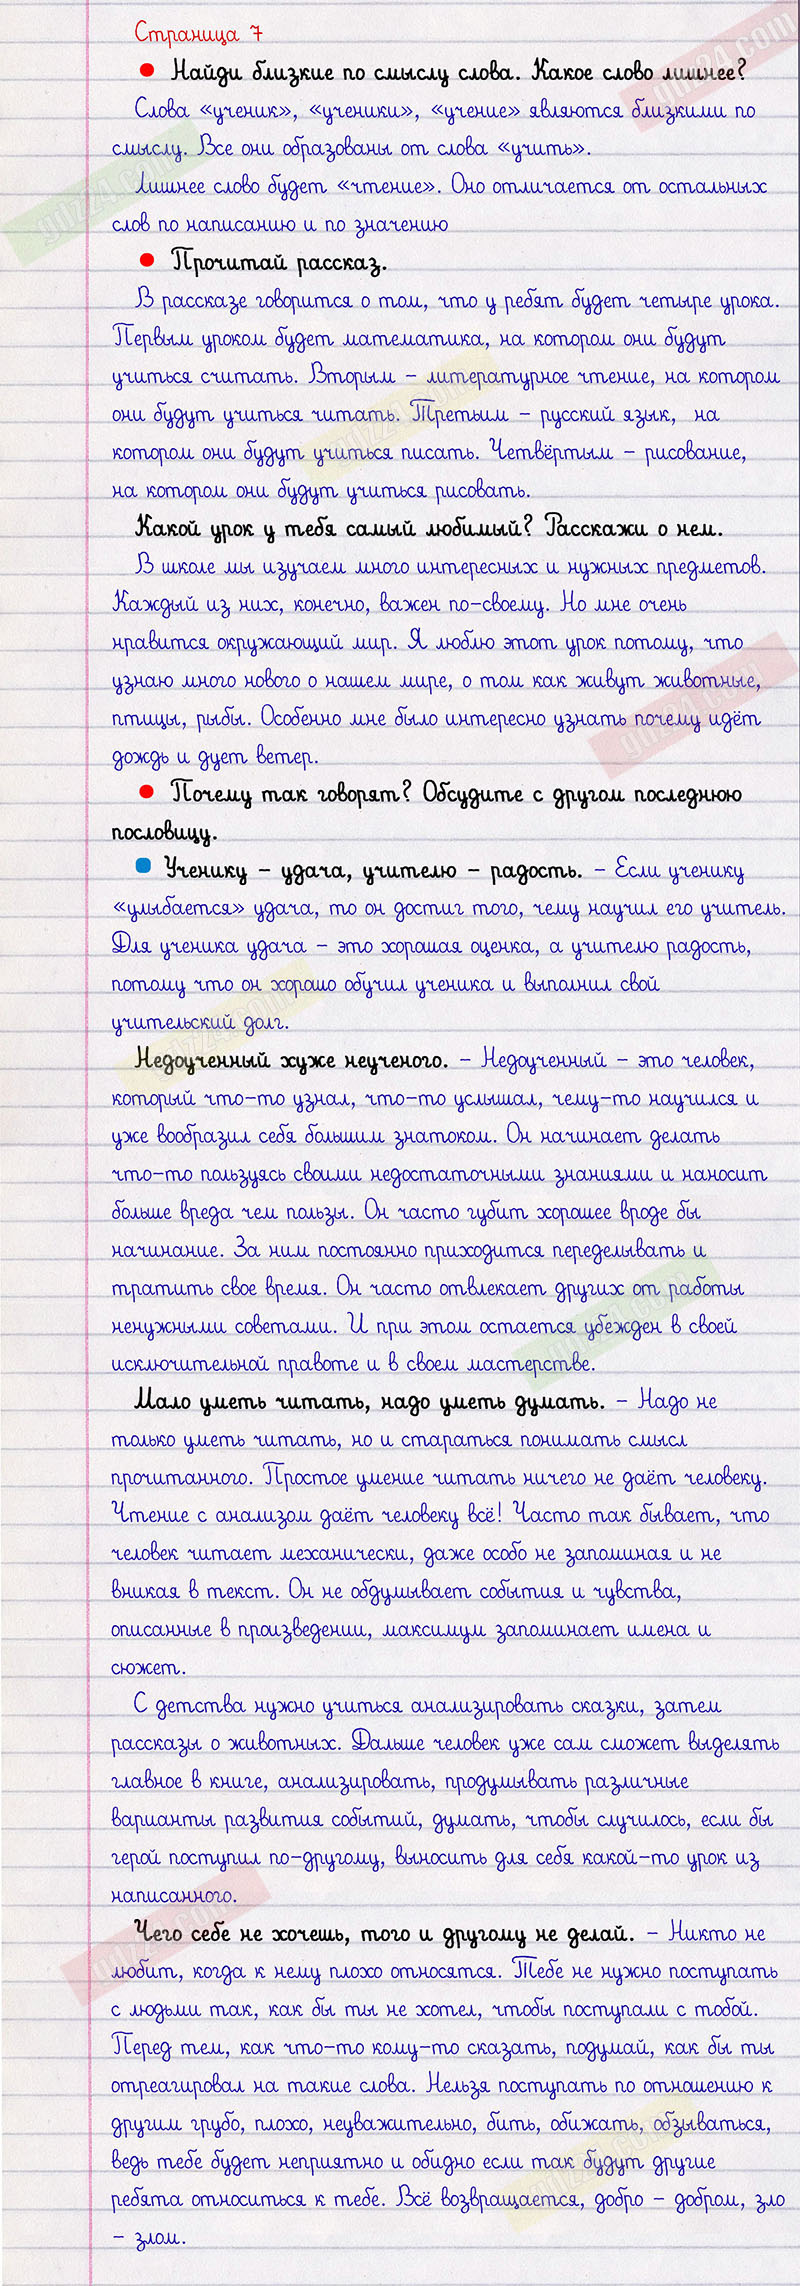 Страница 7
Найди близкие по смыслу слова. Какое слово лишнее?
Слова «ученик», «ученики», «учение» являются близкими по
смыслу. Все они образованы от слова «учить».
Лишнее слово будет «чтение». Оно отличается от остальных
слов по написанию и по значению
Прочитай рассказ.
В рассказе говорится о том, что у ребят будет четыре урока.
Первым уроком будет математика, на котором они будут
учиться считать. Вторым – литературное чтение, на котором
они будут учиться читать. Третьим – русский язык, на
котором они будут учиться писать. Четвёртым – рисование,
на котором они будут учиться рисовать.
Какой урок у тебя самый любимый? Расскажи о нем.
В школе мы изучаем много интересных и нужных предметов.
Каждый из них, конечно, важен по-своему. Но мне очень
нравится окружающий мир. Я люблю этот урок потому, что
узнаю много нового о нашем мире, о том как живут животные,
птицы, рыбы. Особенно мне было интересно узнать почему идёт
дождь и дует ветер.
Почему так говорят? Обсудите с другом последнюю
пословицу.
Ученику – удача, учителю – радость. – Если ученику
«улыбается» удача, то он достиг того, чему научил его учитель.
Для ученика удача – это хорошая оценка, а учителю радость,
потому что он хорошо обучил ученика и выполнил свой
учительский долг.
Недоученный хуже неученого. – Недоученный – это человек,
который что-то узнал, что-то услышал, чему-то научился и
уже вообразил себя большим знатоком. Он начинает делать
что-то пользуясь своими недостаточными знаниями и наносит
больше вреда чем пользы. Он часто губит хорошее вроде бы
начинание. За ним постоянно приходится переделывать и
тратить свое время. Он часто отвлекает других от работы
ненужными советами. И при этом остается убежден в своей
исключительной правоте и в своем мастерстве.
Мало уметь читать, надо уметь думать. – Надо не
только уметь читать, но и стараться понимать смысл
прочитанного. Простое умение читать ничего не даёт человеку.
Чтение с анализом даёт человеку всё! Часто так бывает, что
человек читает механически, даже особо не запоминая и не
вникая в текст. Он не обдумывает события и чувства,
описанные в произведении, максимум запоминает имена и
сюжет.
С детства нужно учиться анализировать сказки, затем
рассказы о животных. Дальше человек уже сам сможет выделять
главное в книге, анализировать, продумывать различные
варианты развития событий, думать, чтобы случилось, если бы
герой поступил по-другому, выносить для себя какой-то урок из
написанного.
Чего себе не хочешь, того и другому не делай. – Никто не
любит, когда к нему плохо относятся. Тебе не нужно поступать
с людьми так, как бы ты не хотел, чтобы поступали с тобой.
Перед тем, как что-то кому-то сказать, подумай, как бы ты
отреагировал на такие слова. Нельзя поступать по отношению к
другим грубо, плохо, неуважительно, бить, обижать, обзываться,
ведь тебе будет неприятно и обидно если так будут другие
ребята относиться к тебе. Всё возвращается, добро – добром, зло
– злом.
gdz24.com
gdz24.com
gdz24.com
gdz24.com
gdz24.com
gdz24.com
gdz24.com
gdz24.com